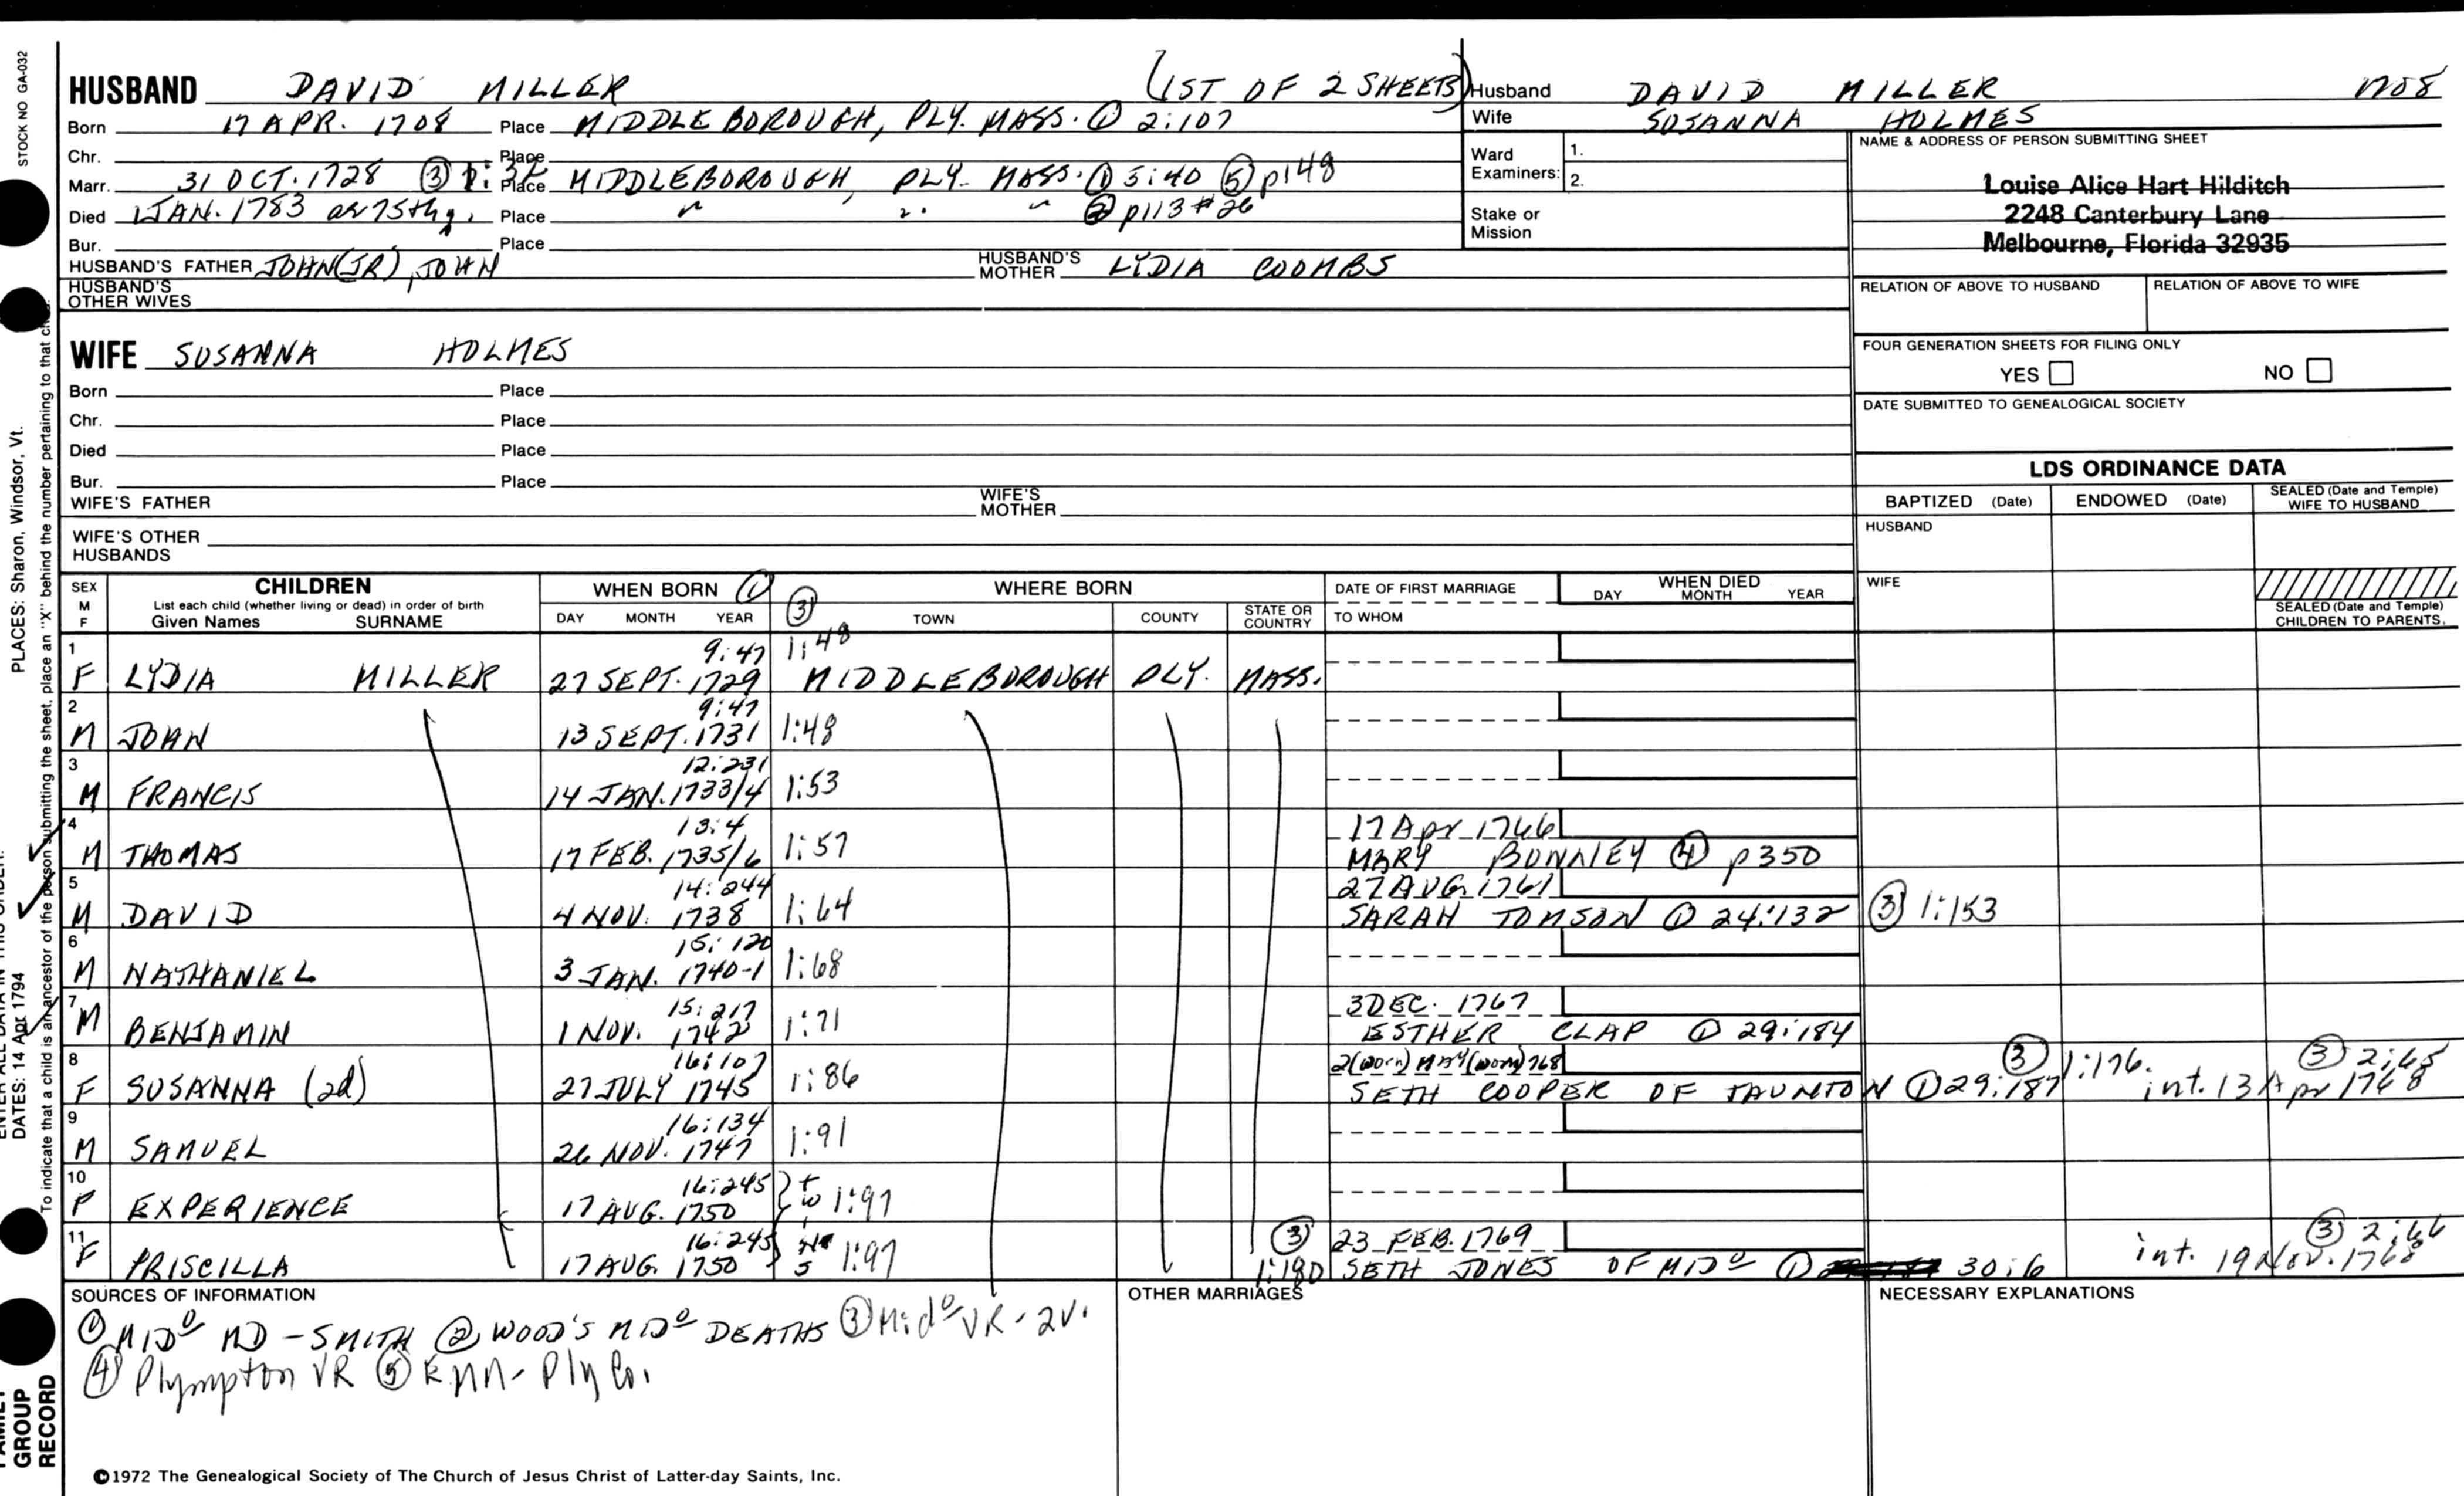 STOCK NO GA-032
HUSBAND DAVID MILLER (1ST OF 2 SHEETS)
Born 17 APR. 1708 Place MIDDLEBOROUGH, PLY. MASS. ① 2:107
Chr. Place
Marr. 31 OCT. 1728 ③ 1:32 Place MIDDLEBOROUGH, PLY. MASS. ① 5:40 ⑤ p148
Died 1 JAN. 1783 Place " " " ② p113 #26
Bur. Place
HUSBAND'S FATHER JOHN (JR), JOHN HUSBAND'S MOTHER LYDIA COOMBS
HUSBAND'S OTHER WIVES
Husband DAVID MILLER 1708
Wife SUSANNA HOLMES
Ward Examiners: 1.
2.
Stake or Mission
NAME & ADDRESS OF PERSON SUBMITTING SHEET
Louise Alice Hart Hilditch
2248 Canterbury Lane
Melbourne, Florida 32935
RELATION OF ABOVE TO HUSBAND RELATION OF ABOVE TO WIFE
FOUR GENERATION SHEETS FOR FILING ONLY
YES NO
DATE SUBMITTED TO GENEALOGICAL SOCIETY
WIFE SUSANNA HOLMES
Born Place
Chr. Place
Died Place
Bur. Place
WIFE'S FATHER WIFE'S MOTHER
WIFE'S OTHER HUSBANDS
LDS ORDINANCE DATA
BAPTIZED (Date) ENDOWED (Date) SEALED (Date and Temple) WIFE TO HUSBAND
HUSBAND
WIFE
SEALED (Date and Temple) CHILDREN TO PARENTS
SEX M F CHILDREN WHEN BORN ① WHERE BORN DATE OF FIRST MARRIAGE WHEN DIED
List each child (whether living or dead) in order of birth
Given Names SURNAME DAY MONTH YEAR ③ TOWN COUNTY STATE OR COUNTRY TO WHOM DAY MONTH YEAR
1 9:47 1:48
F LYDIA MILLER 27 SEPT. 1729 MIDDLEBOROUGH PLY. MASS.
2 9:47
M JOHN 13 SEPT. 1731 1:48
3 12:231
M FRANCIS 14 JAN. 1733/4 1:53
4 13:4 17 Apr 1766
M THOMAS 17 FEB. 1735/6 1:57 MARY BONNEY ④ p350
5 14:244 27 AUG. 1761
M DAVID 4 NOV. 1738 1:64 SARAH TOMSON ① 24:132 ③ 1:153
6 15:120
M NATHANIEL 3 JAN. 1740-1 1:68
7 15:217 3 DEC. 1767
M BENJAMIN 1 NOV. 1742 1:71 ESTHER CLAP ① 29:184
8 16:107 2 (worn) MAY (worn) 768 ③ 1:176. ③ 2:65
F SUSANNA (2d) 27 JULY 1745 1:86 SETH COOPER OF TAUNTON ① 29:187 int. 13 Apr 1768
9 16:134
M SAMUEL 26 NOV. 1747 1:91
10 16:245
F EXPERIENCE 17 AUG. 1750 1:97
11 16:245 ③ 23 FEB. 1769 ③ 2:66
F PRISCILLA 17 AUG. 1750 1:97 1:180 SETH JONES OF MIDº ① 30:6 int. 19 Nov. 1768
SOURCES OF INFORMATION
① MIDº MD - SMITH ② WOOD'S MIDº DEATHS ③ Midº VR - 2V.
④ Plympton VR ⑤ Ply Co.
OTHER MARRIAGES
NECESSARY EXPLANATIONS
PLACES: Sharon, Windsor, Vt.
DATES: 14 Apr 1794
To indicate that a child is an ancestor of the person submitting the sheet, place an "X" behind the number pertaining to that
GROUP
RECORD
©1972 The Genealogical Society of The Church of Jesus Christ of Latter-day Saints, Inc.